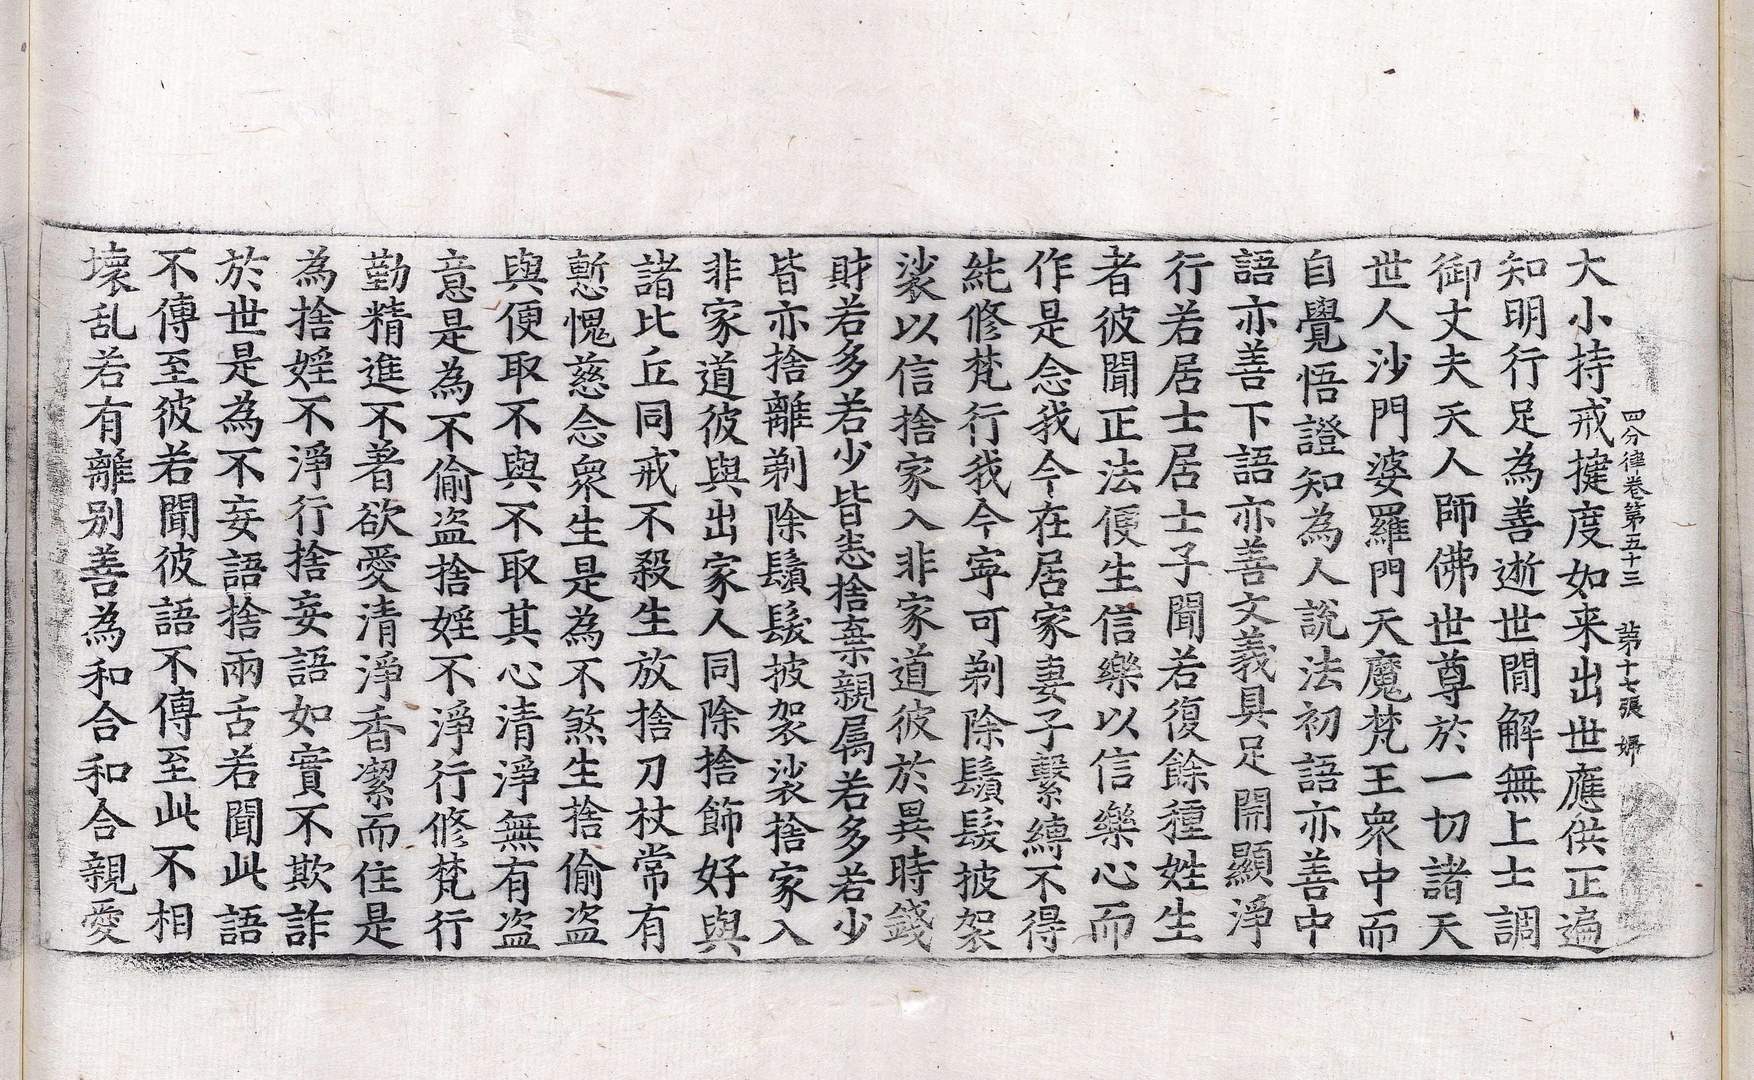 四分律卷第五十三 第十七張 婦
大小持戒揵度如来出世應供正遍
知明行足為善逝世間解無上士調
御丈夫天人師佛世尊於一切諸天
世人沙門婆羅門天魔梵王衆中而
自覺悟證知為人說法初語亦善中
語亦善下語亦善文義具足開顯淨
行若居士居士子聞若復餘種姓生
者彼聞正法便生信樂以信樂心而
作是念我今在居家妻子繫縛不得
純修梵行我今寧可剃除鬚髮披袈
裟以信捨家入非家道彼於異時錢
財若多若少皆悉捨棄親属若多若少
皆亦捨離剃除鬚髮披袈裟捨家入
非家道彼與出家人同除捨飾好與
諸比丘同戒不殺生放捨刀杖常有
慙愧慈念衆生是為不煞生捨偷盗
與便取不與不取其心清淨無有盗
意是為不偷盗捨婬不淨行修梵行
勤精進不著欲愛清淨香潔而住是
為捨婬不淨行捨妄語如實不欺詐
於世是為不妄語捨兩舌若聞此語
不傳至彼若聞彼語不傳至此不相
壞乱若有離別善為和合和合親愛